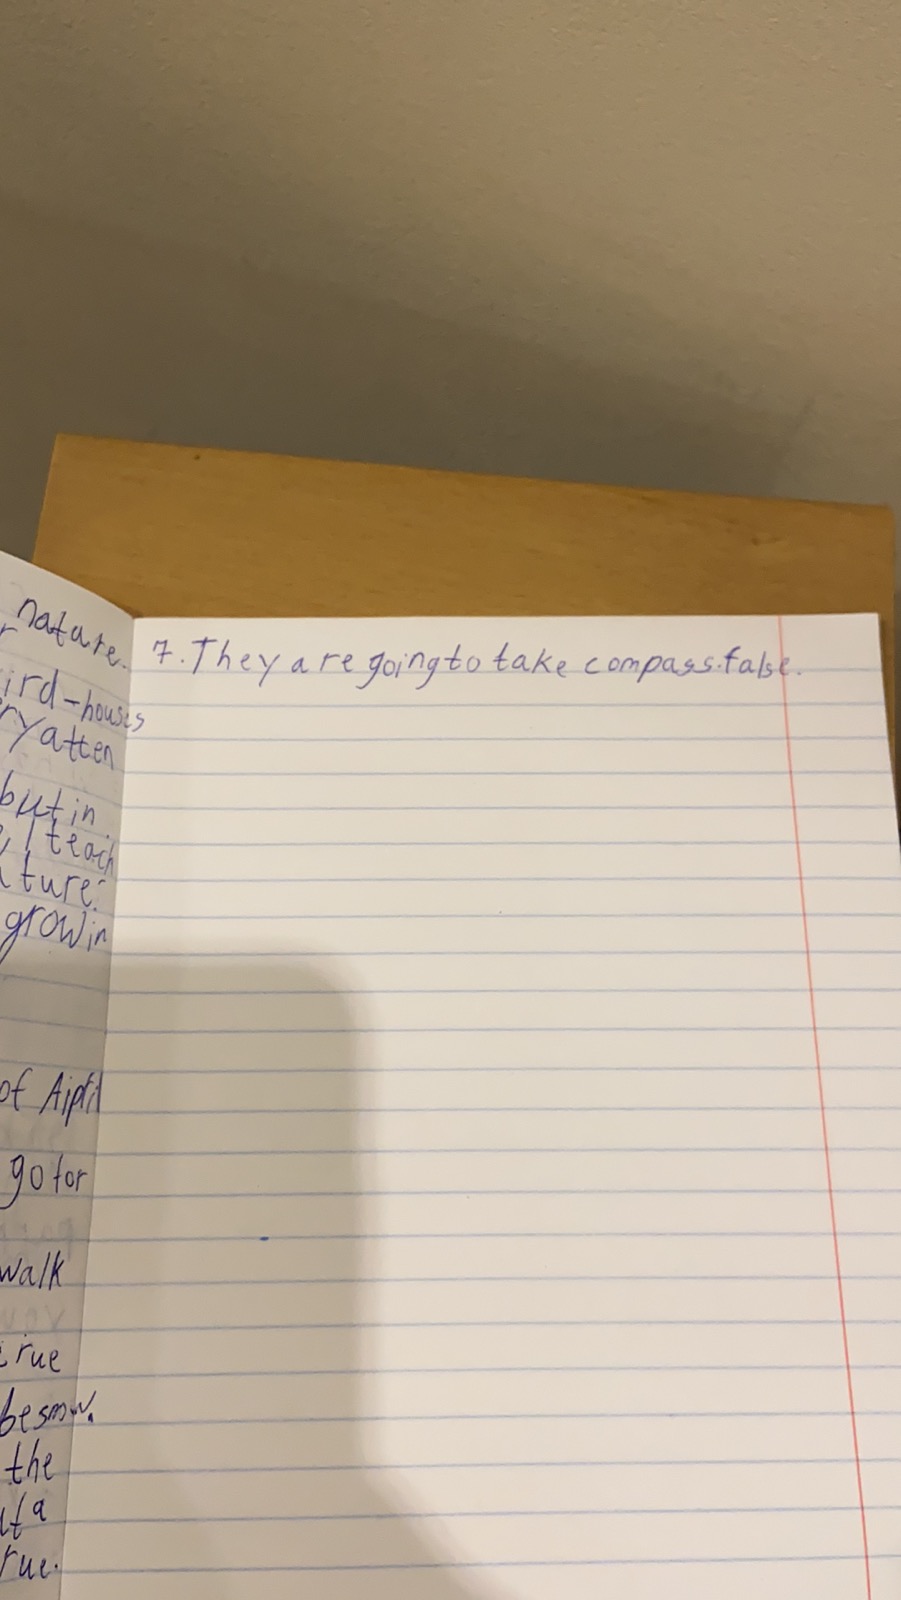 nature.
ird-houses
ry atten
but in
I teach
ture.
grow in
of Aiptil
go for
walk
rue
be snow.
the
a
rue.
7. They are going to take compass. false.